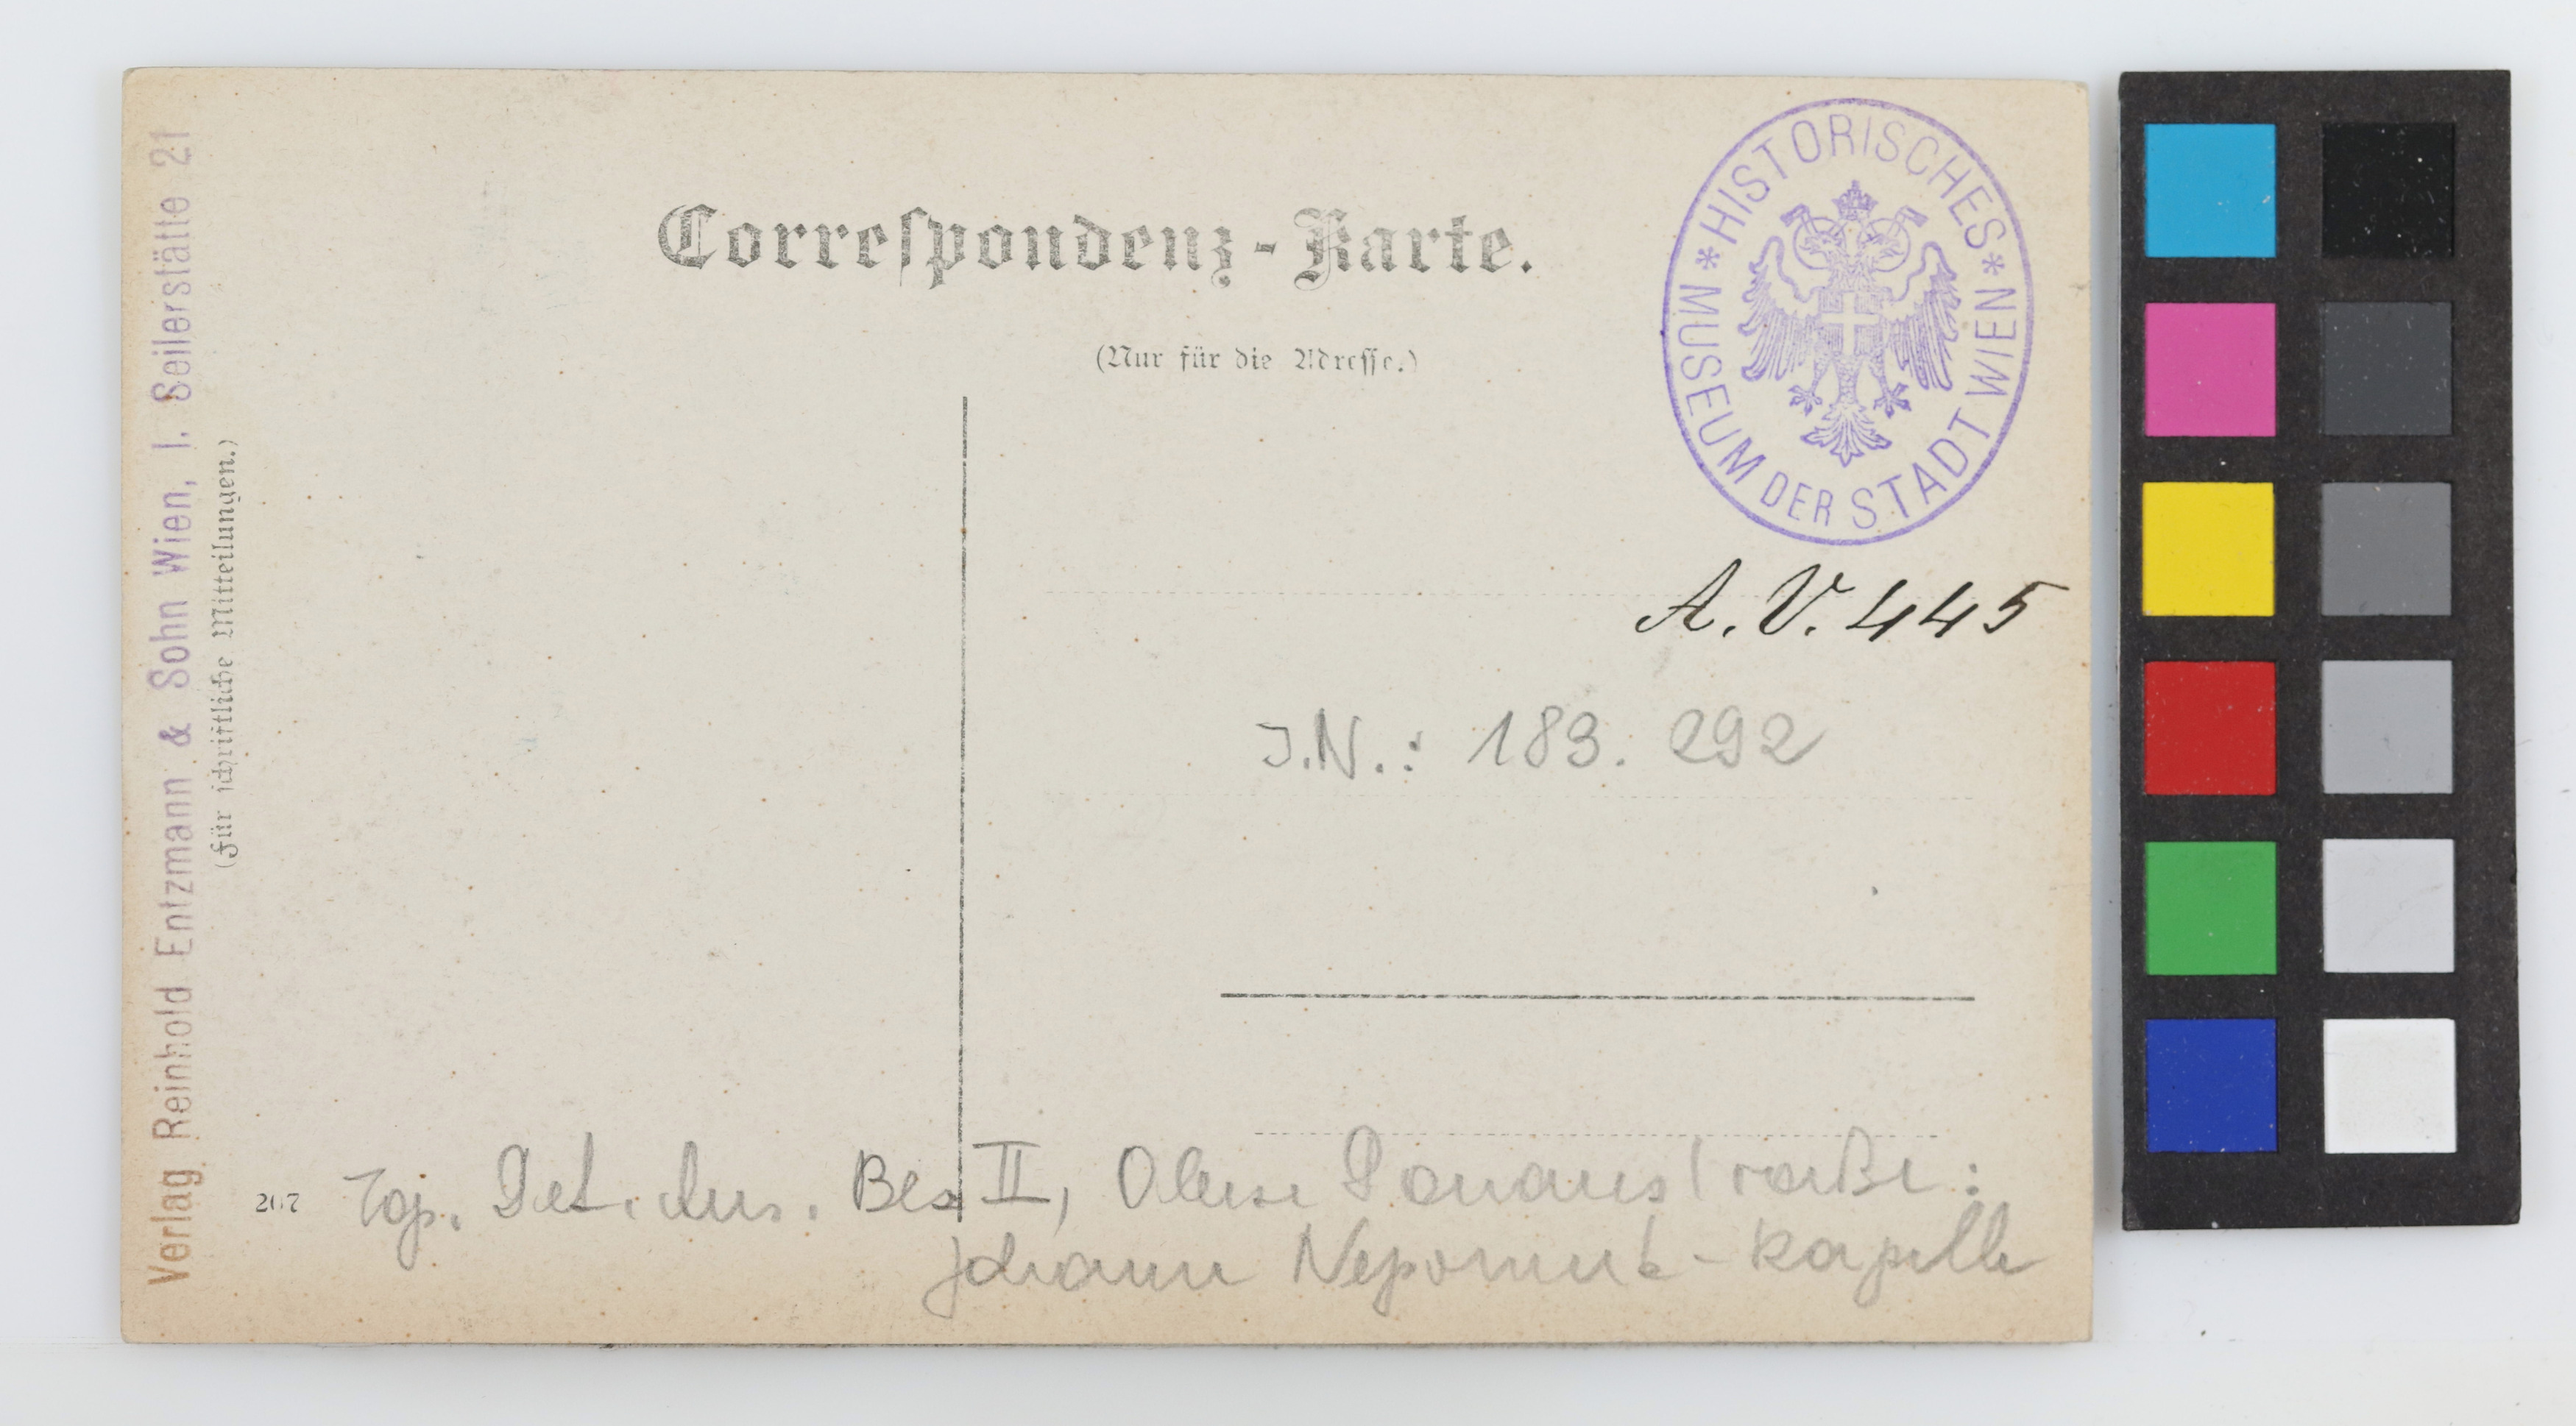 Correspondenz-Karte.
(Nur für die Adresse.)
* HISTORISCHES *
MUSEUM DER STADT WIEN
A.V. 445
J.N.: 183. 292
Verlag Reinhold Entzmann & Sohn Wien, I. Seilerstätte 21
(Für schriftliche Mitteilungen.)
207
Top. Det. Aus. Bez II, Obere Donaustraße:
Johann Nepomuk-Kapelle